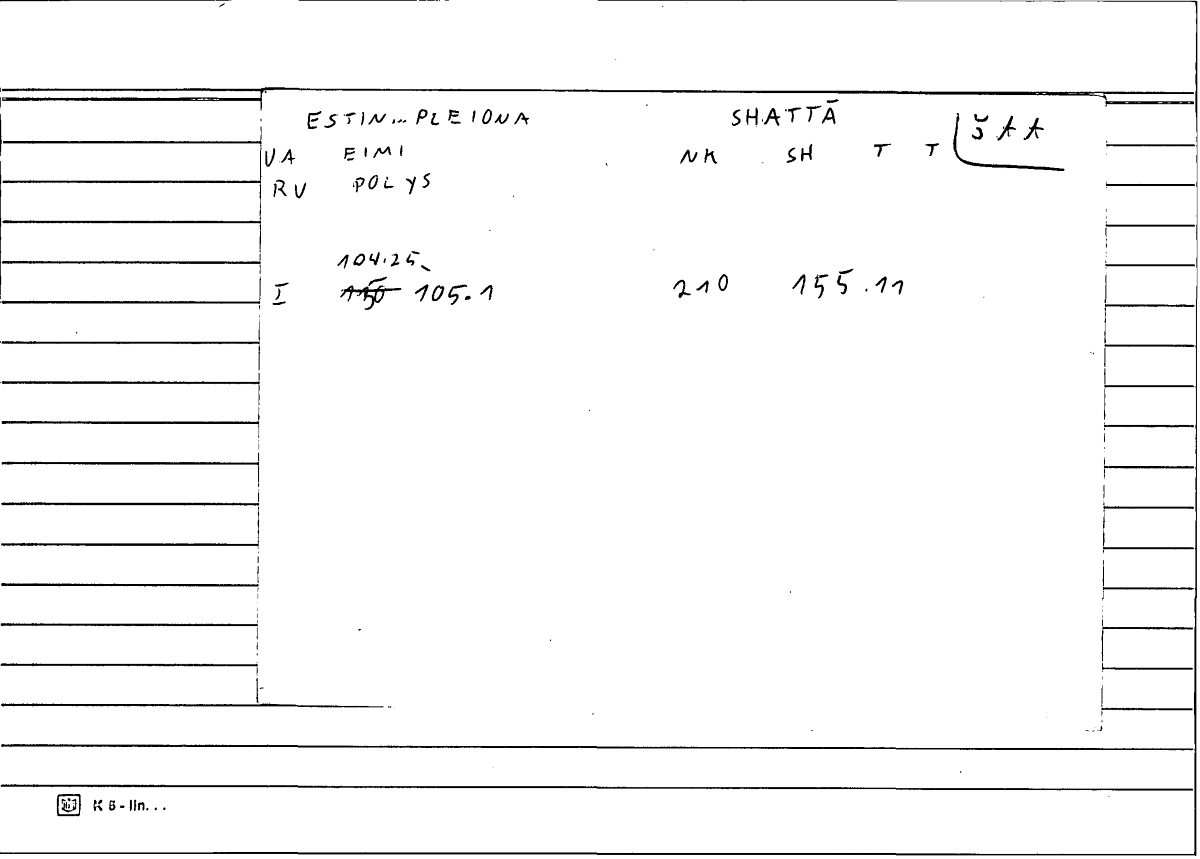 ESTIN... PLEIONA SHATTĀ
VA EIMI NK SH T T ŠAA
RV POLYS
104.25
I 150 105.1 210 155.11
K 6 - lin...